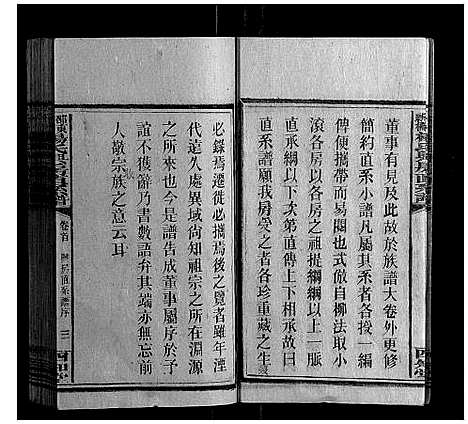 董事有見及此故於族譜大卷外更修
簡約直系小譜凡屬其系者各授一編
俾便攜帶而易閱也式倣自柳法取小
滾各房以各房之祖提綱綱以上一脈
直承綱以下次第直傳上下相承故曰
直系譜願我房受之者各珍重藏之生
必錄焉遷徙必攜焉後之覽者雖年湮
代遠久處異域尚知祖宗之所在淵源
之所來也今是譜告成董事屬序於予
誼不獲辭乃書數語弁其端亦無忘前
人敬宗族之意云耳
卷首
直系譜序
三